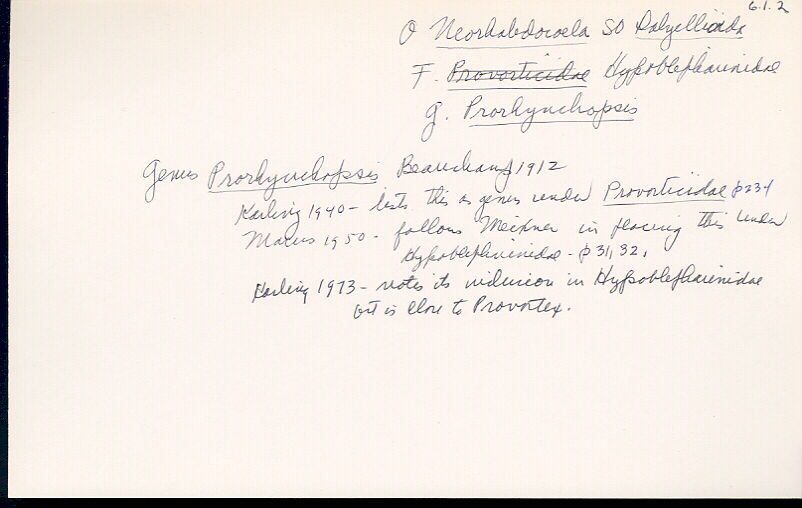 6.1.2
O Neorhabdocoela SO Dalyellioida
F. Provorticidae Hypoblepharinidae
G. Prorhynchopsis
Genus Prorhynchopsis Beauchamp 1912
Karling 1940 - lists this as genus under Provorticidae p 234
Marcus 1950 - follows Meixner in placing this under
Hypoblepharinidae - p 31, 32,
Karling 1973 - notes its inclusion in Hypoblepharinidae
but is close to Provortex.